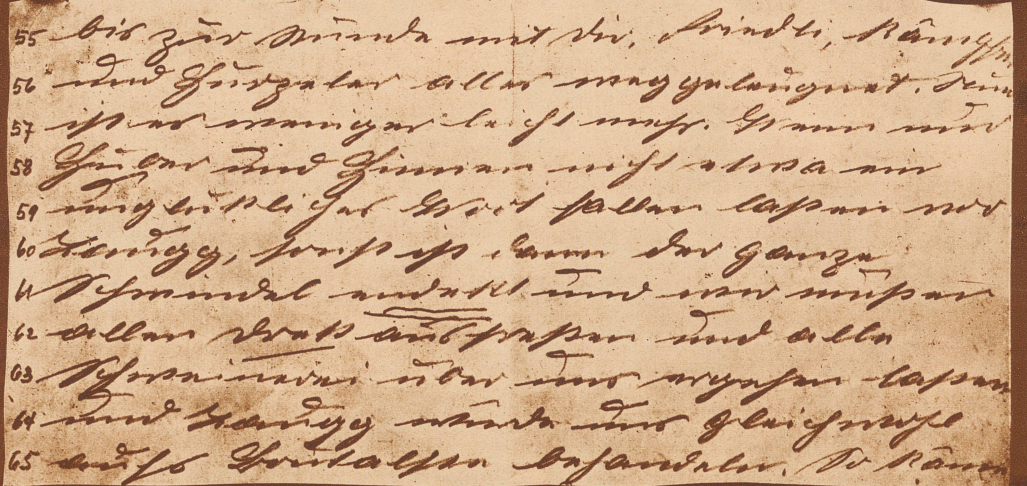 55 bis zur Stunde mit dir, Friedli, Kämpfe
56 und Gurgeler alles weggeleugnet. Nun
57 ist es weniger leicht mehr. Wenn nur
58 Huber und Zinnen nicht etwa ein
59 unglükliches Wort fallen laßen vor
60 Zaugg, sonst ist dann der ganze
61 Schwindel endekt und wir müßen
62 allen Drek ausfreßen und alle
63 Schweinerei über uns ergehen laßen
64 und Zaugg würde uns gleichwohl
65 aufs Brutalste behandeln. So käme